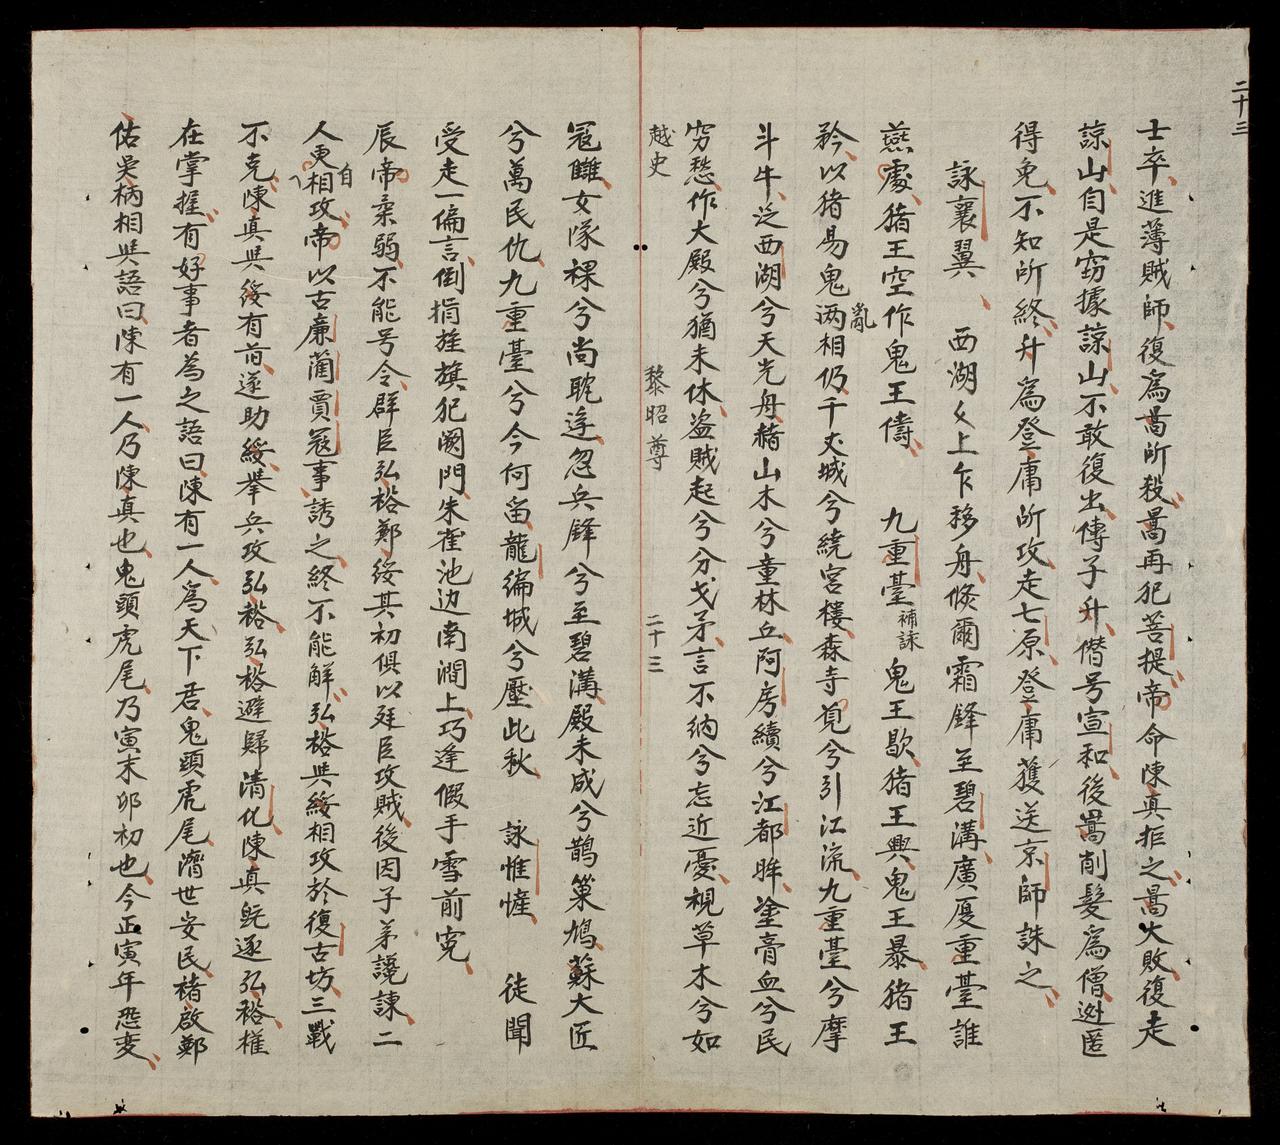 二十三
士卒進薄賊師復爲暠所殺暠再犯菩提帝命陳真拒之暠大敗復走
諒山自是窃據諒山不敢復出傳子升僭号宣和後暠削髮爲僧迯匿
得免不知所終升爲登庸所攻走七原登庸獲送京師誅之
詠襄翼 西湖々上乍移舟倏爾霜鋒至碧溝廣厦重臺誰
燕處猪王空作鬼王儔 九重臺補詠 鬼王歇猪王興鬼王暴猪王
矜以猪易鬼兩相仍千丈城兮繞宮樓森寺覓兮引江流九重臺兮摩
亂
斗牛泛西湖兮天光舟赭山木兮童林丘阿房續兮江都眸塗膏血兮民
穷愁作大殿兮猶未休盗賊起兮分戈矛言不納兮忘近憂視草木兮如
越史 黎昭尊 二十三
冦雠女隊裸兮尚耽逰忽兵鋒兮至碧溝殿未成兮鵲巢鳩蘇大匠
兮萬民仇九重臺兮今何畄龍编城兮壓此秋 詠惟㦃 徒聞
受走一偏言倒捐旌旗犯阙門朱雀池边南澗上巧逢假手雪前寃
辰帝柔弱不能号令群臣弘裕鄭綏其初俱以廷臣攻賊後因子弟讒諫二
人更相攻帝以古廉藺賈冦事誘之終不能解弘裕與綏相攻於復古坊三戰
自
不克陳真與綏有旧遂助綏举兵攻弘裕弘裕避歸清化陳真既逐弘裕權
在掌握有好事者為之語曰陳有一人爲天下君鬼頭虎尾濟世安民褚啟鄭
估吳柄相與語曰陳有一人乃陳真也鬼頭虎尾乃寅末卯初也今正寅年恐变